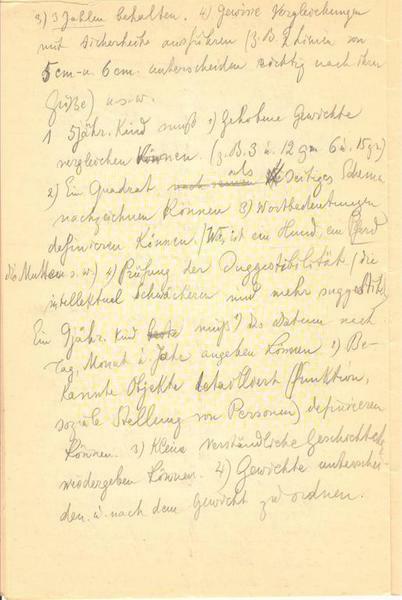 3) 3 Zahlen behalten. 4) Gewisse Vergleichungen
mit Sicherheit ausführen (z.B. 2 Linien von
5 cm u. 6 cm. unterscheiden richtig nach ihrer
Größe) u.s.w.
1 5jähr. Kind muß 1) Gehobene Gewichte
vergleichen können. (z.B. 3 u. 12 gr 6 u. 15 gr)
2) Ein Quadrat als seitiges Schema
nachzeichnen können 3) Wortbedeutungen
definieren können. (Was ist ein Hund, ein Pferd
die Mutter u.s.w.) 4) Prüfung der Suggestibilität (die
intellektuel Schwächeren sind mehr suggestibel)
Ein 9jähr. Kind muß 1) Das Datum nach
Tag, Monat u. Jahr angeben können 2) Be-
kannte Objekte detailliert (Funktion,
soziale Stellung von Personen) definieren
können. 3) Kleine verständliche Geschichte
wiedergeben können. 4) Gewichte unterschei-
den u. nach dem Gewicht zu ordnen.